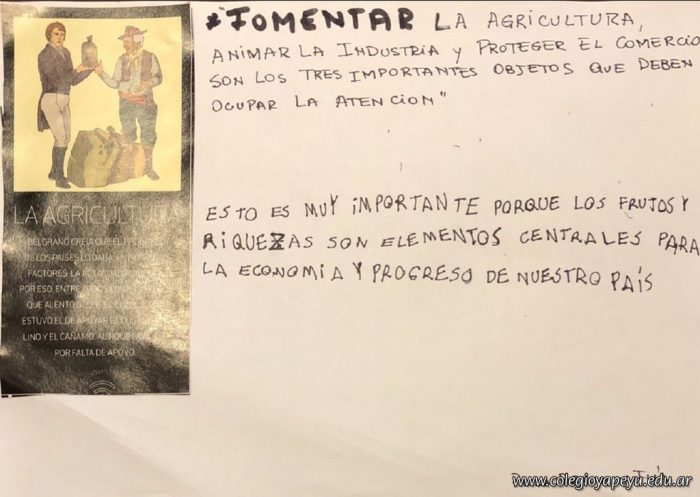 "FOMENTAR LA AGRICULTURA,
ANIMAR LA INDUSTRIA Y PROTEGER EL COMERCIO
SON LOS TRES IMPORTANTES OBJETOS QUE DEBEN
OCUPAR LA ATENCION"
ESTO ES MUY IMPORTANTE PORQUE LOS FRUTOS Y
RIQUEZAS SON ELEMENTOS CENTRALES PARA
LA ECONOMIA Y PROGRESO DE NUESTRO PAÍS
LA AGRICULTURA
BELGRANO CREÍA QUE EL
DE LOS PAÍSES LO DABA, ENTRE
FACTORES, LA ACTIVIDAD
POR ESO, ENTRE
QUE ALENTÓ
ESTUVO EL DE APOYAR EL
LINO Y EL CÁÑAMO, AUNQUE
POR FALTA DE APOYO.
www.colegioyapeyu.edu.ar